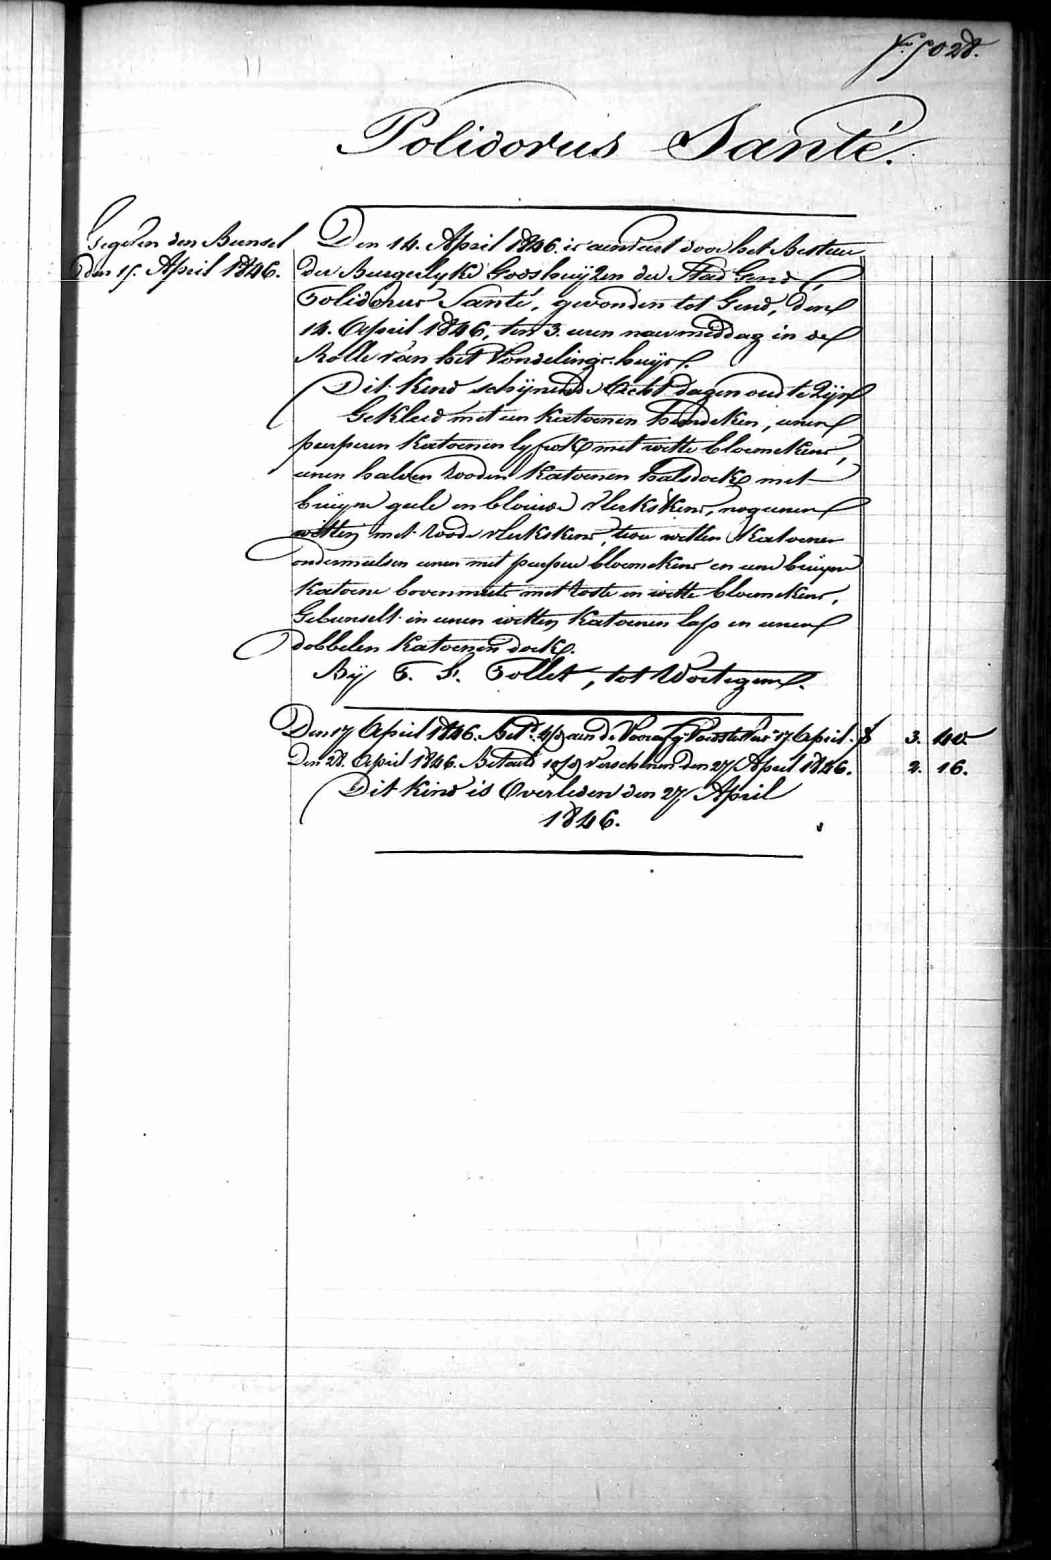 fo. 5028.
Polidorus Santé.
Gegeven den Bunsel
den 15. April 1846.
Den 14. April 1846. is aenveert door het Bestuur
der Burgerlyke Godshuijzen der Stad Gend,
Polidorus Santé, gevonden tot Gend, den
14. April 1846, ten 3. uren naermiddag in de
Rolle van het Vondelings-huijs.
Dit Kind schijnende Acht dagen oud te Zijn
Gekleed met een Katoenen hemdeken, eenen
purperen Katoenen lyfrok met witte bloemekens,
eenen halven rooden Katoenen halsdoek met
bruijne geele en blauwe vlekskens, nog eenen
witten met roode vlekskens, twee witten Katoenen
ondermutsen eenen met purpere bloemekens en eene bruijne
Katoene bovenmuts met roste en witte bloemekens,
Gebunselt in eenen witten Katoenen lap en eenen
dobbelen Katoenen doek.
Bij F. S. Follet, tot Wortegem.
Den 17 April 1846. Bet. aen de Voors. 17 April. 3. 40
Den 28. April 1846. Betaeld verschenen den 27 April 1846. 2. 16.
Dit Kind is Overleden den 27 April
1846.